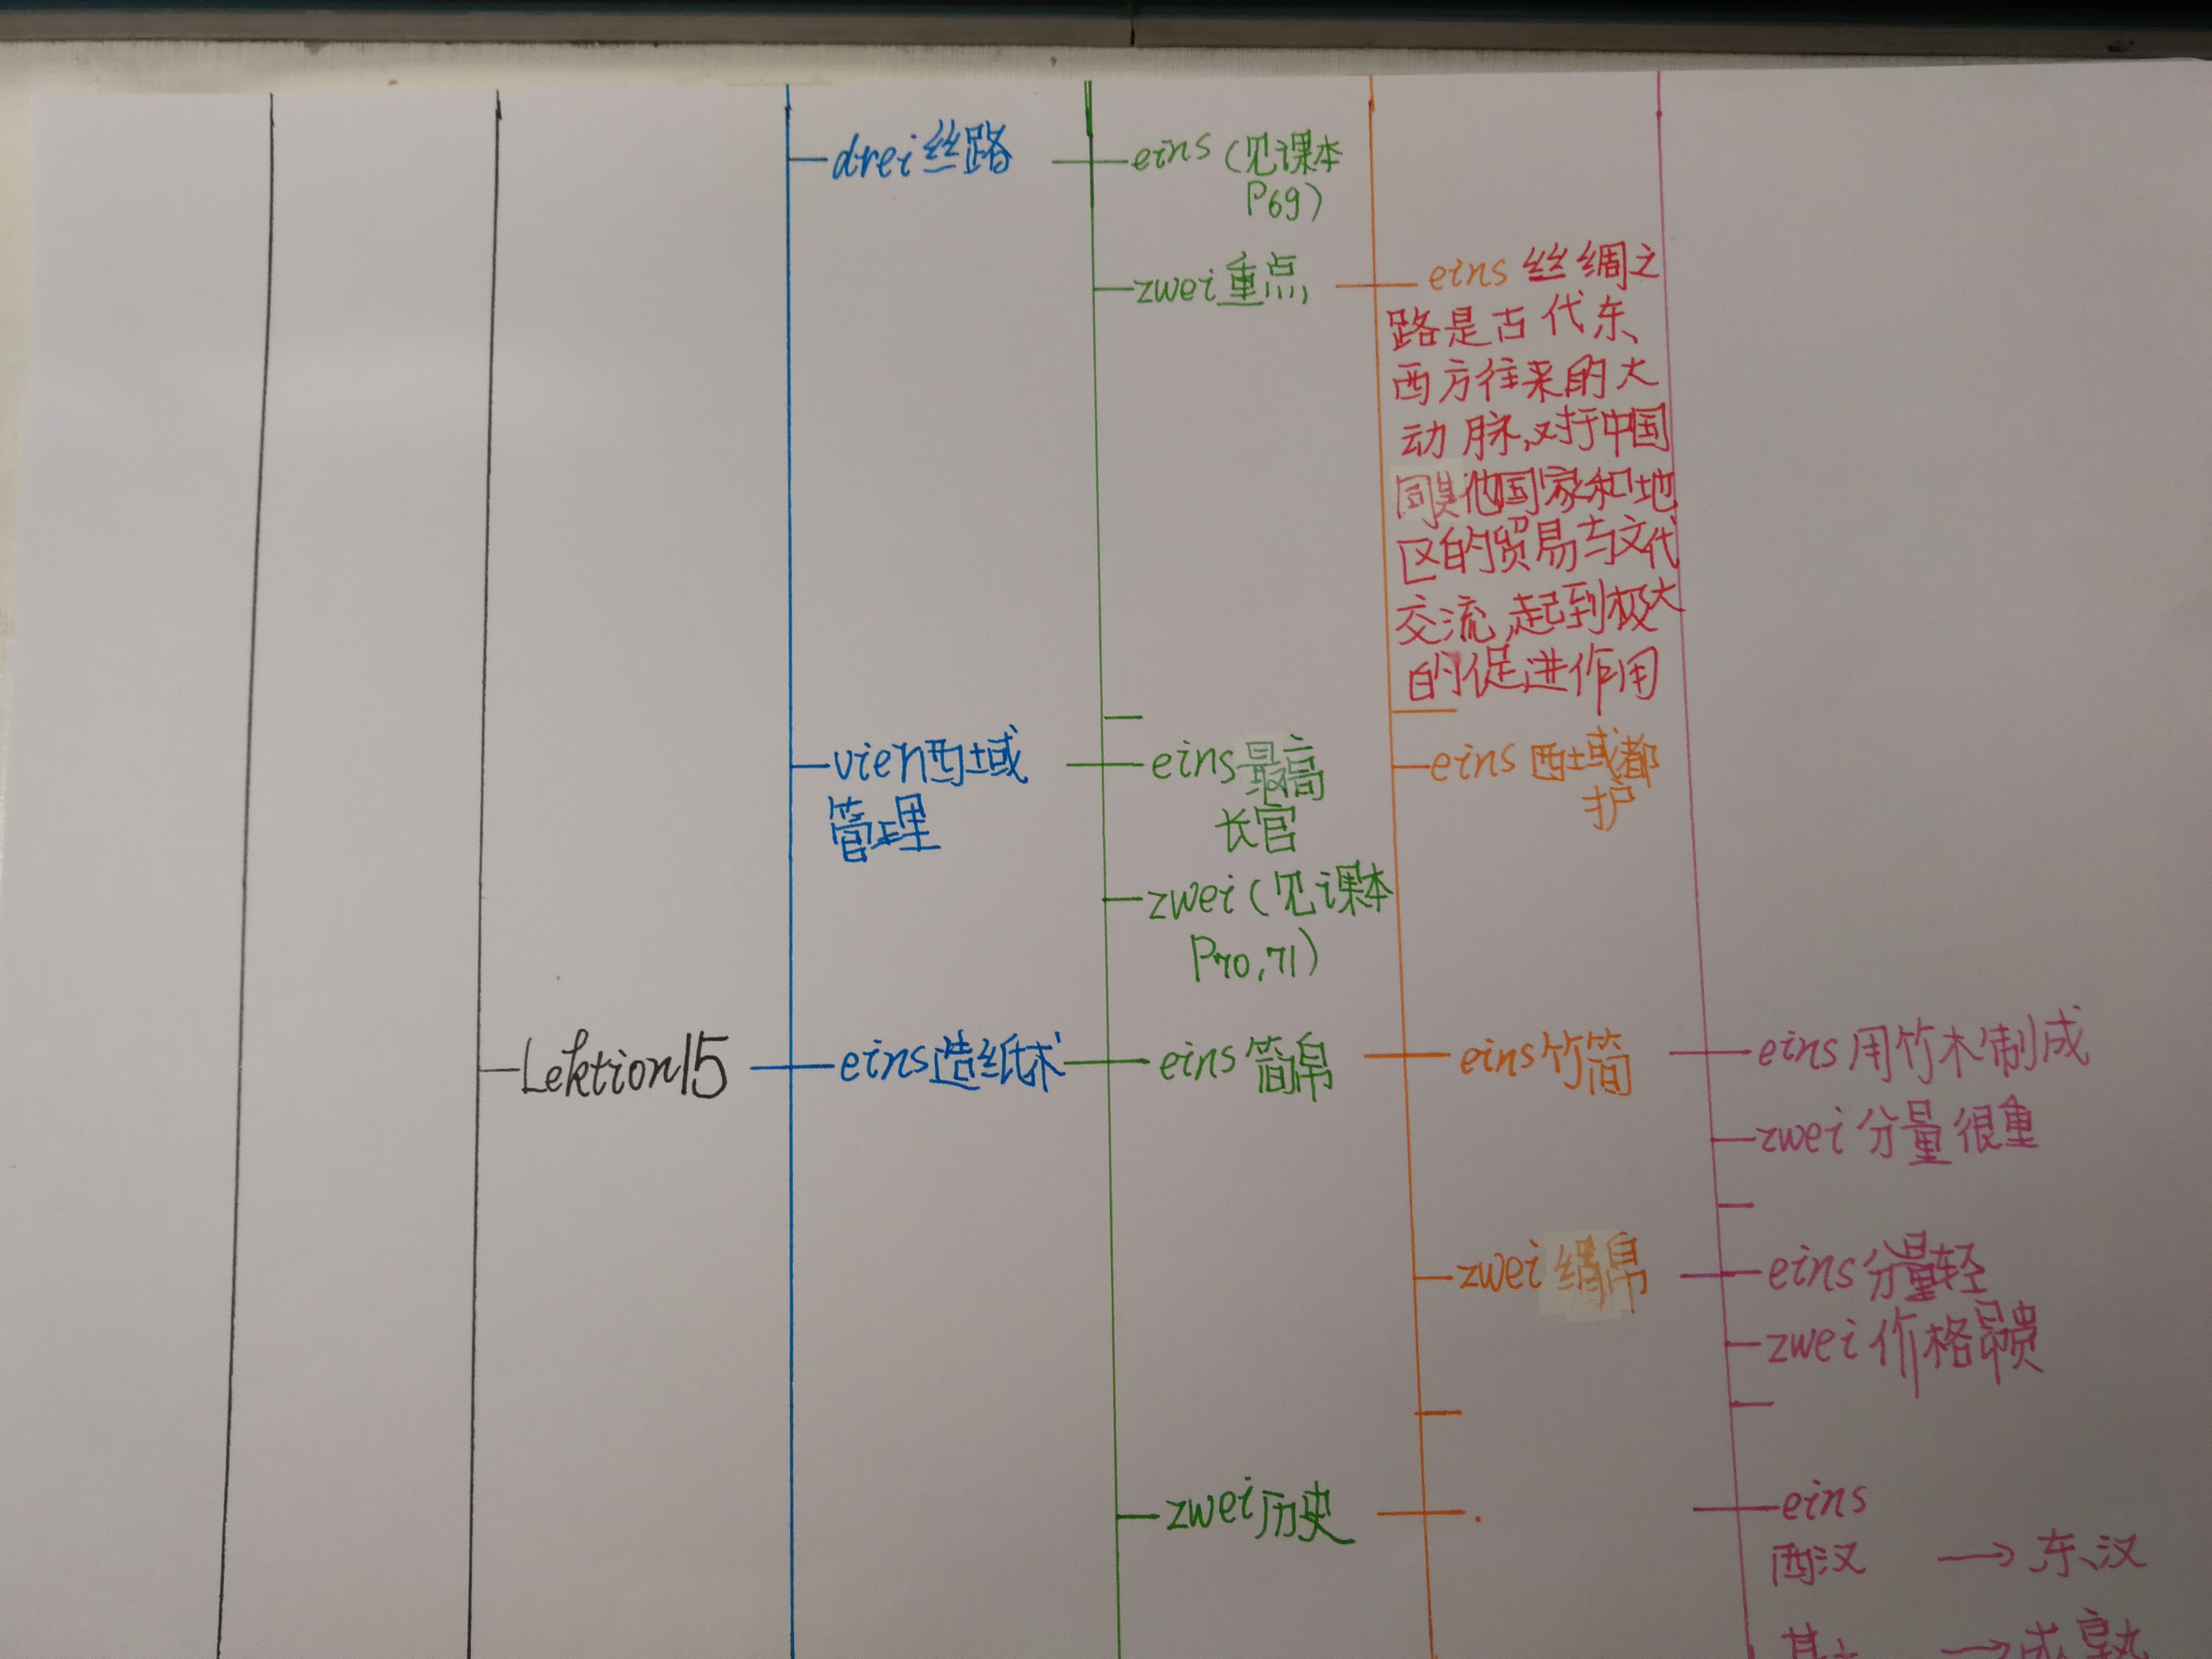 drei 丝路
eins (见课本
P69)
zwei 重点
eins 丝绸之
路是古代东、
西方往来的大
动脉,对于中国
同其他国家和地
区的贸易与文化
交流,起到极大
的促进作用
vier 西域
管理
eins 最高
长官
eins 西域都
护
zwei (见课本
P70,71)
Lektion 15
eins 造纸术
eins 简帛
eins 竹简
eins 用竹木制成
zwei 分量很重
zwei 绢帛
eins 分量轻
zwei 价格昂贵
zwei 历史
eins
西汉 → 东汉
→ 成熟